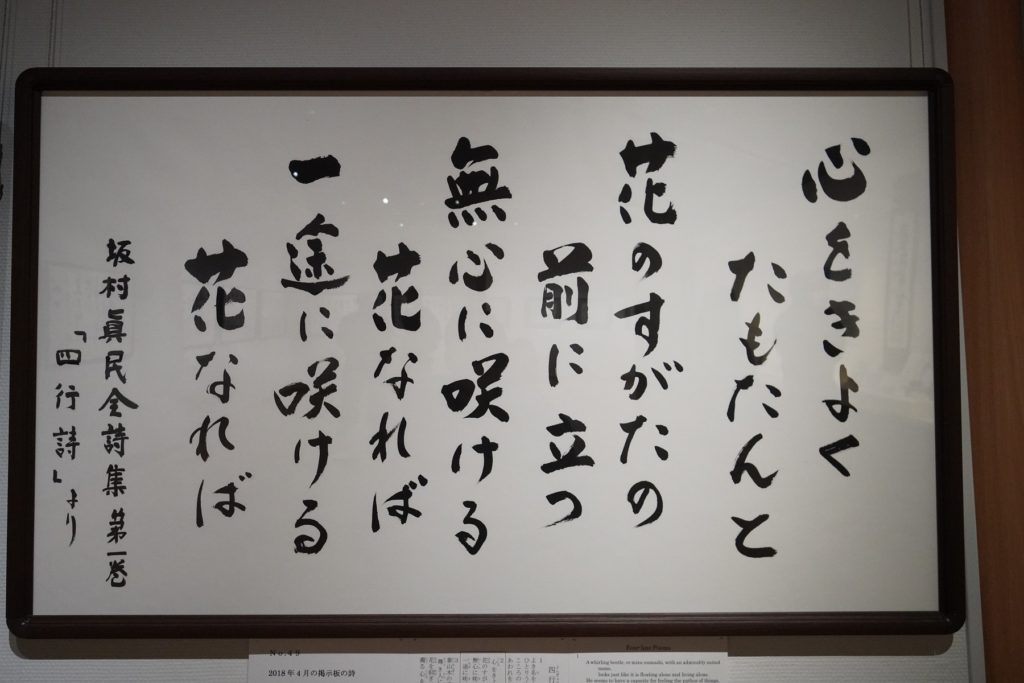 心をきよく
たもたんと
花のすがたの
前に立つ
無心に咲ける
花なれば
一途に咲ける
花なれば
坂村眞民全詩集 第一巻
「四行詩」より
No.49
2018年4月の掲示板の詩
Four-line Poems
A whirling beetle, or mizu sumashi, with an admirably suited
name,
looks just like it is floating alone and living alone.
He seems to have a capacity for feeling the pathos of things.